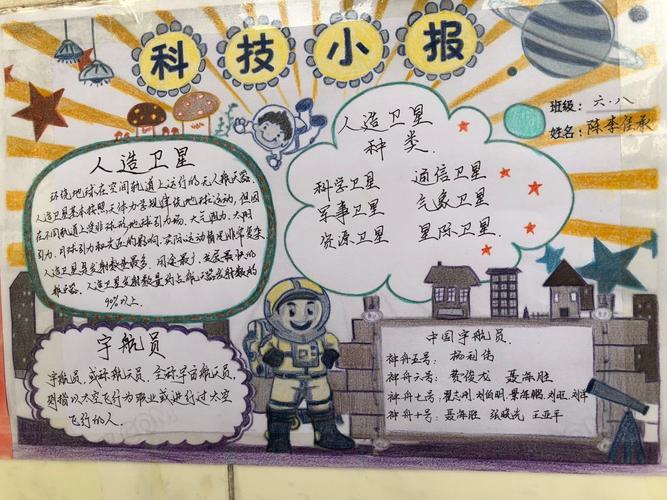 科技小报
班级：六.八
姓名：陈李佳承
人造卫星
环绕地球在空间轨道上运行的无人航天器.
人造卫星基本按照天体力学规律绕地球运动，但因
在不同轨道上受非球形地球引力场、大气阻力、太阳
引力、月球引力和光压的影响，实际运动情况非常复杂
人造卫星是发射数量最多、用途最广、发展最快的
航天器.人造卫星发射数量约占航天器发射总数的
90%以上.
人造卫星
种类.
科学卫星 通信卫星
军事卫星 气象卫星
资源卫星 星际卫星.
宇航员
宇航员，或称航天员，全称宇宙航天员，
则指以太空飞行为职业或进行过太空
飞行的人.
中国宇航员.
神舟五号：杨利伟
神舟六号：费俊龙 聂海胜
神舟七号：翟志刚，刘伯明，景海鹏，刘旺，刘洋
神舟十号：聂海胜 张晓光 王亚平